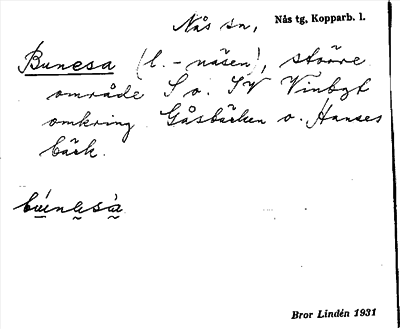 Nås sn, Nås tg, Kopparb. l.
Bunesa (l. -näsen), större
område S o. SV Vinbyt
omkring Gåsbäcken o. Hanses
bäck.
Bror Lindén 1931